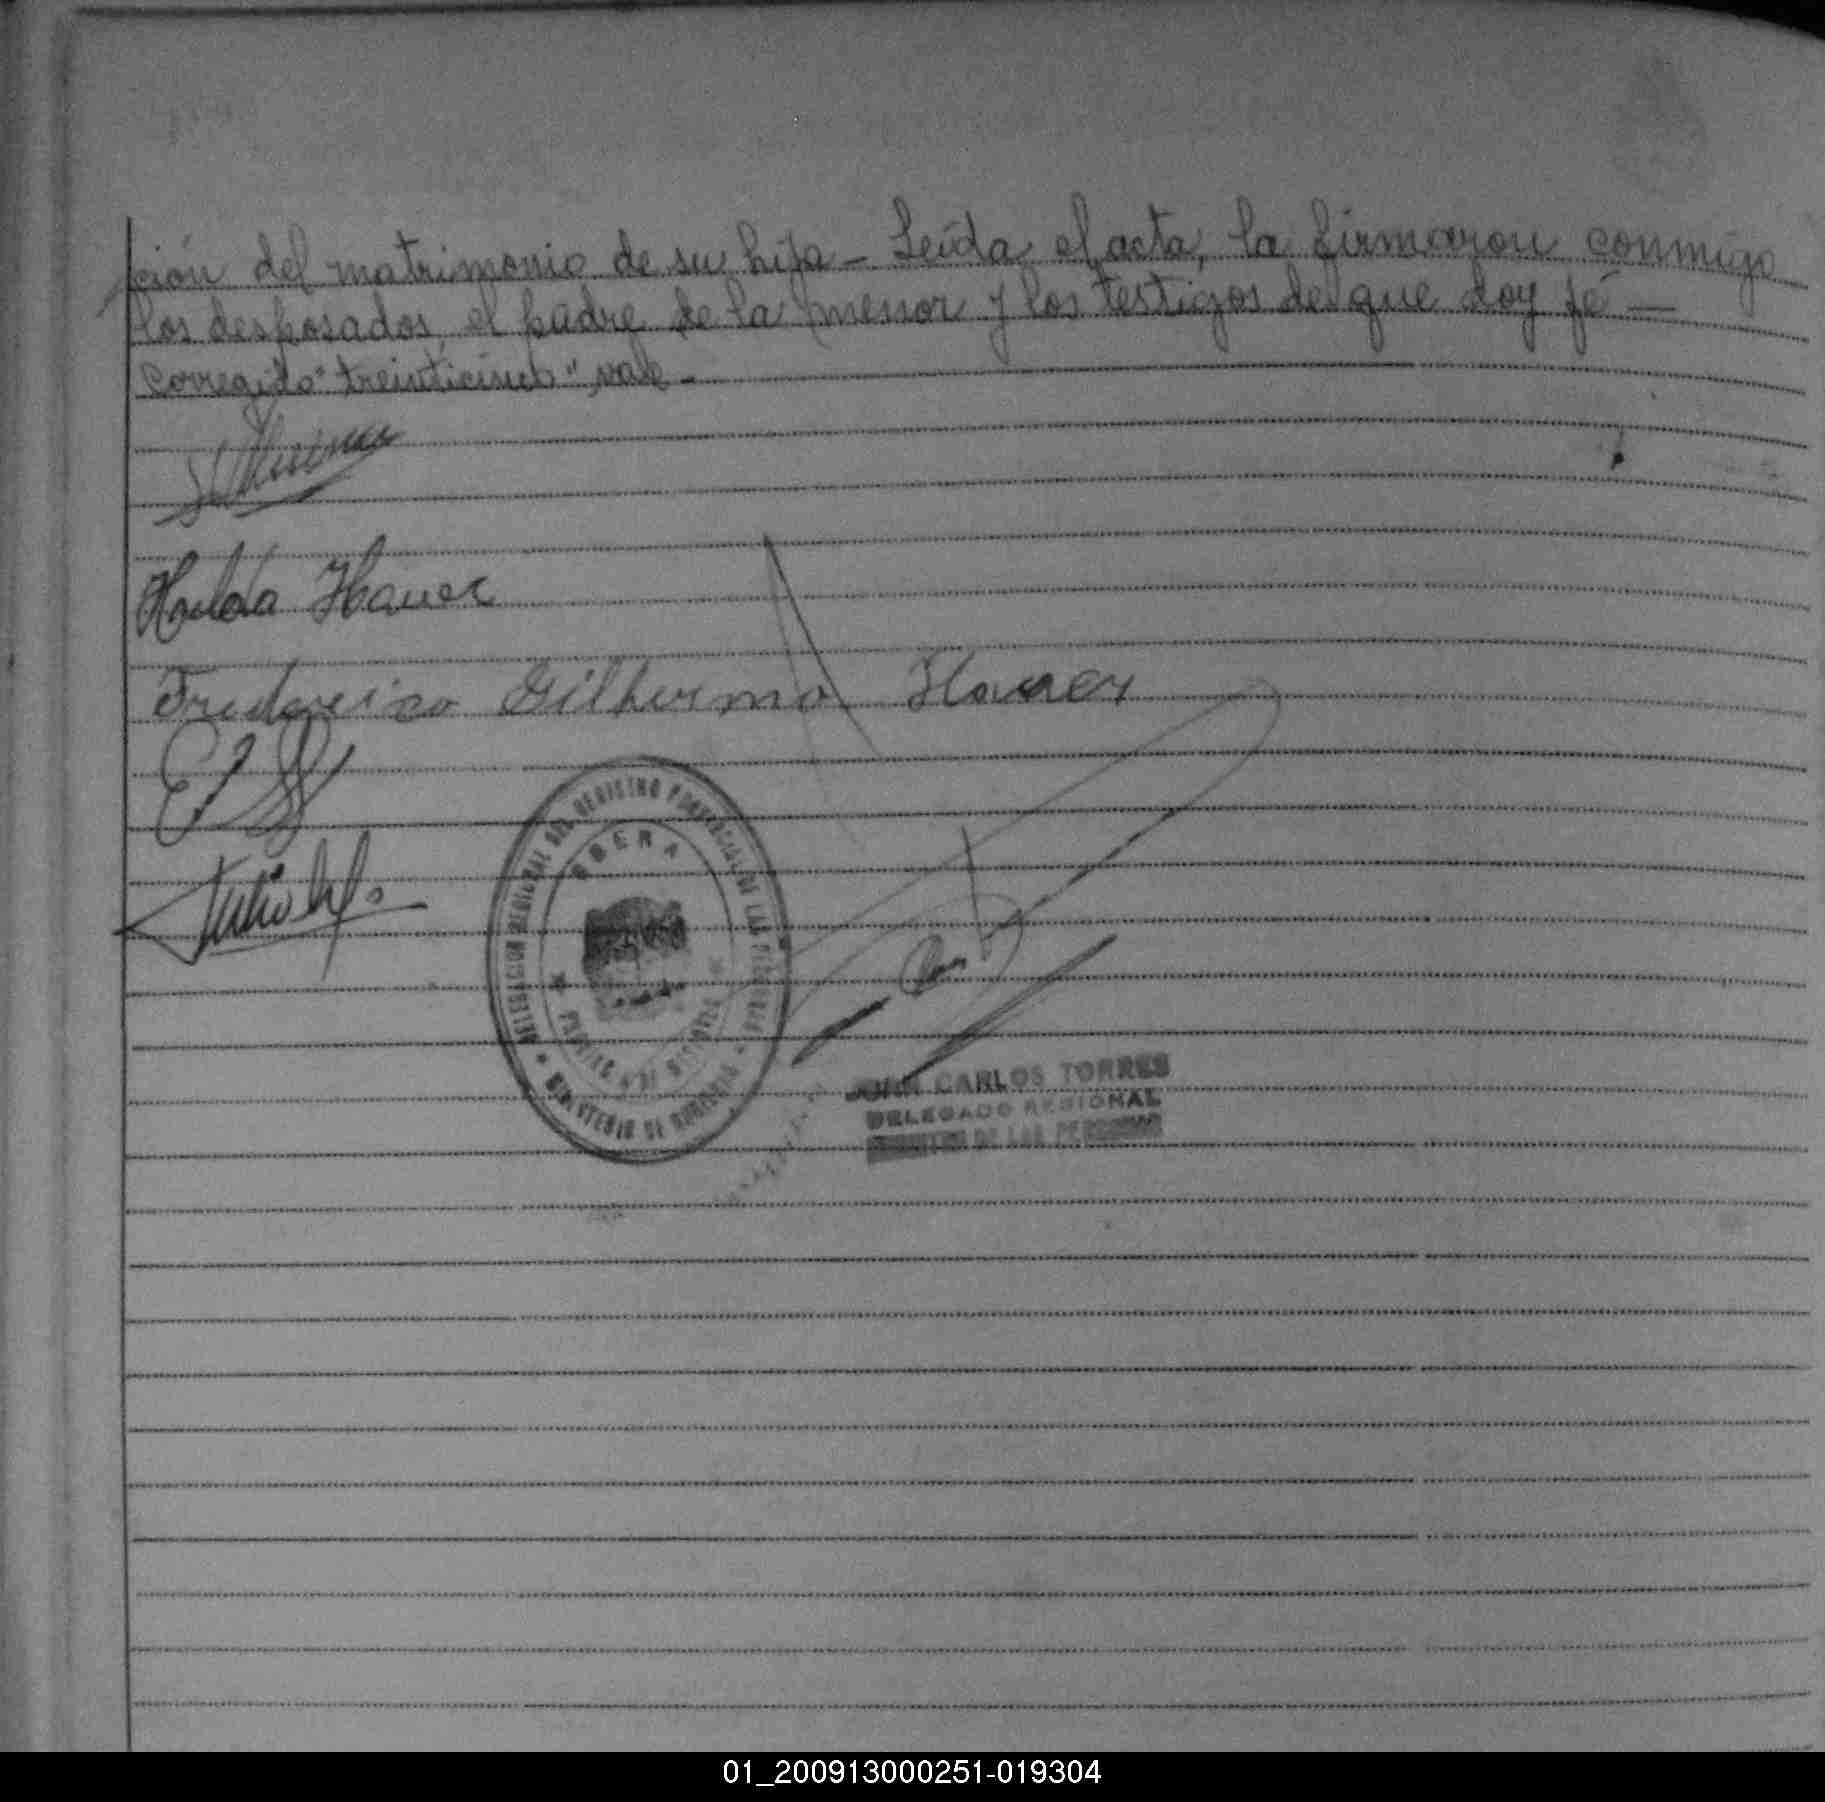 ción del matrimonio de su hija - Leída el acta, la firmaron conmigo
los desposados, el padre de la menor y los testigos de que doy fé —
Corregido "treinticinco", vale -
Hauer
Fredereico Gilhermo Hauer
DELEGACION REGIONAL DEL REGISTRO PROVINCIAL DE LAS PERSONAS
OBERA
PROVINCIA DE MISIONES
MINISTERIO DE GOBIERNO
JUAN CARLOS TORRES
DELEGADO REGIONAL
REGISTRO DE LAS PERSONAS
01_200913000251-019304